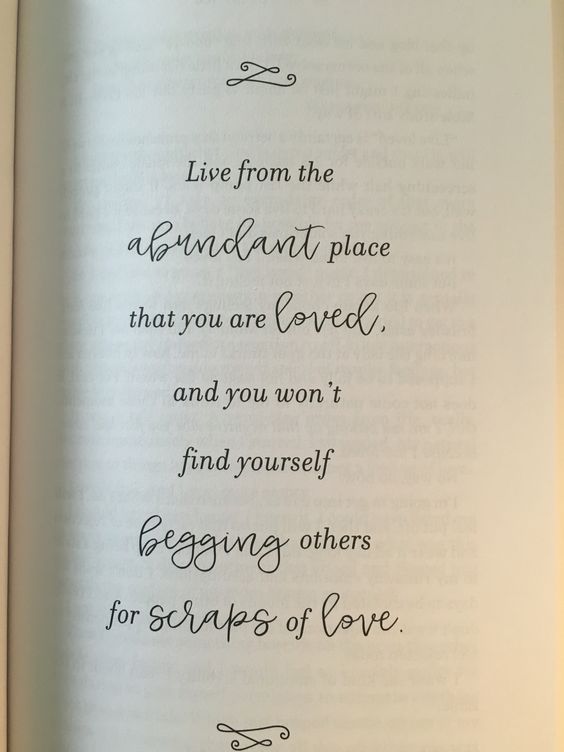 Live from the
abundant place
that you are loved,
and you won't
find yourself
begging others
for scraps of love.